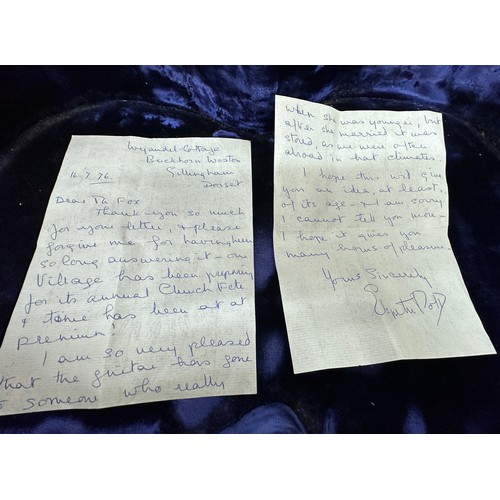 Cottage
Buckhorn Weston
Gillingham
16.7.76. Dorset
Dear Mr Fox
Thank-you so much
for your letter, & please
forgive me for having been
so long answering it - our
Village has been preparing
for its annual Church Fete
& time has been at a
premium!
I am so very pleased
that the guitar has gone
to someone who really
when she was younger, but
after she married it was
stored, as we were often
abroad in hot climates.
I hope this will give
you an idea, at least,
of its age - & I am sorry
I cannot tell you more -
I hope it gives you
many hours of pleasure.
Yours Sincerely